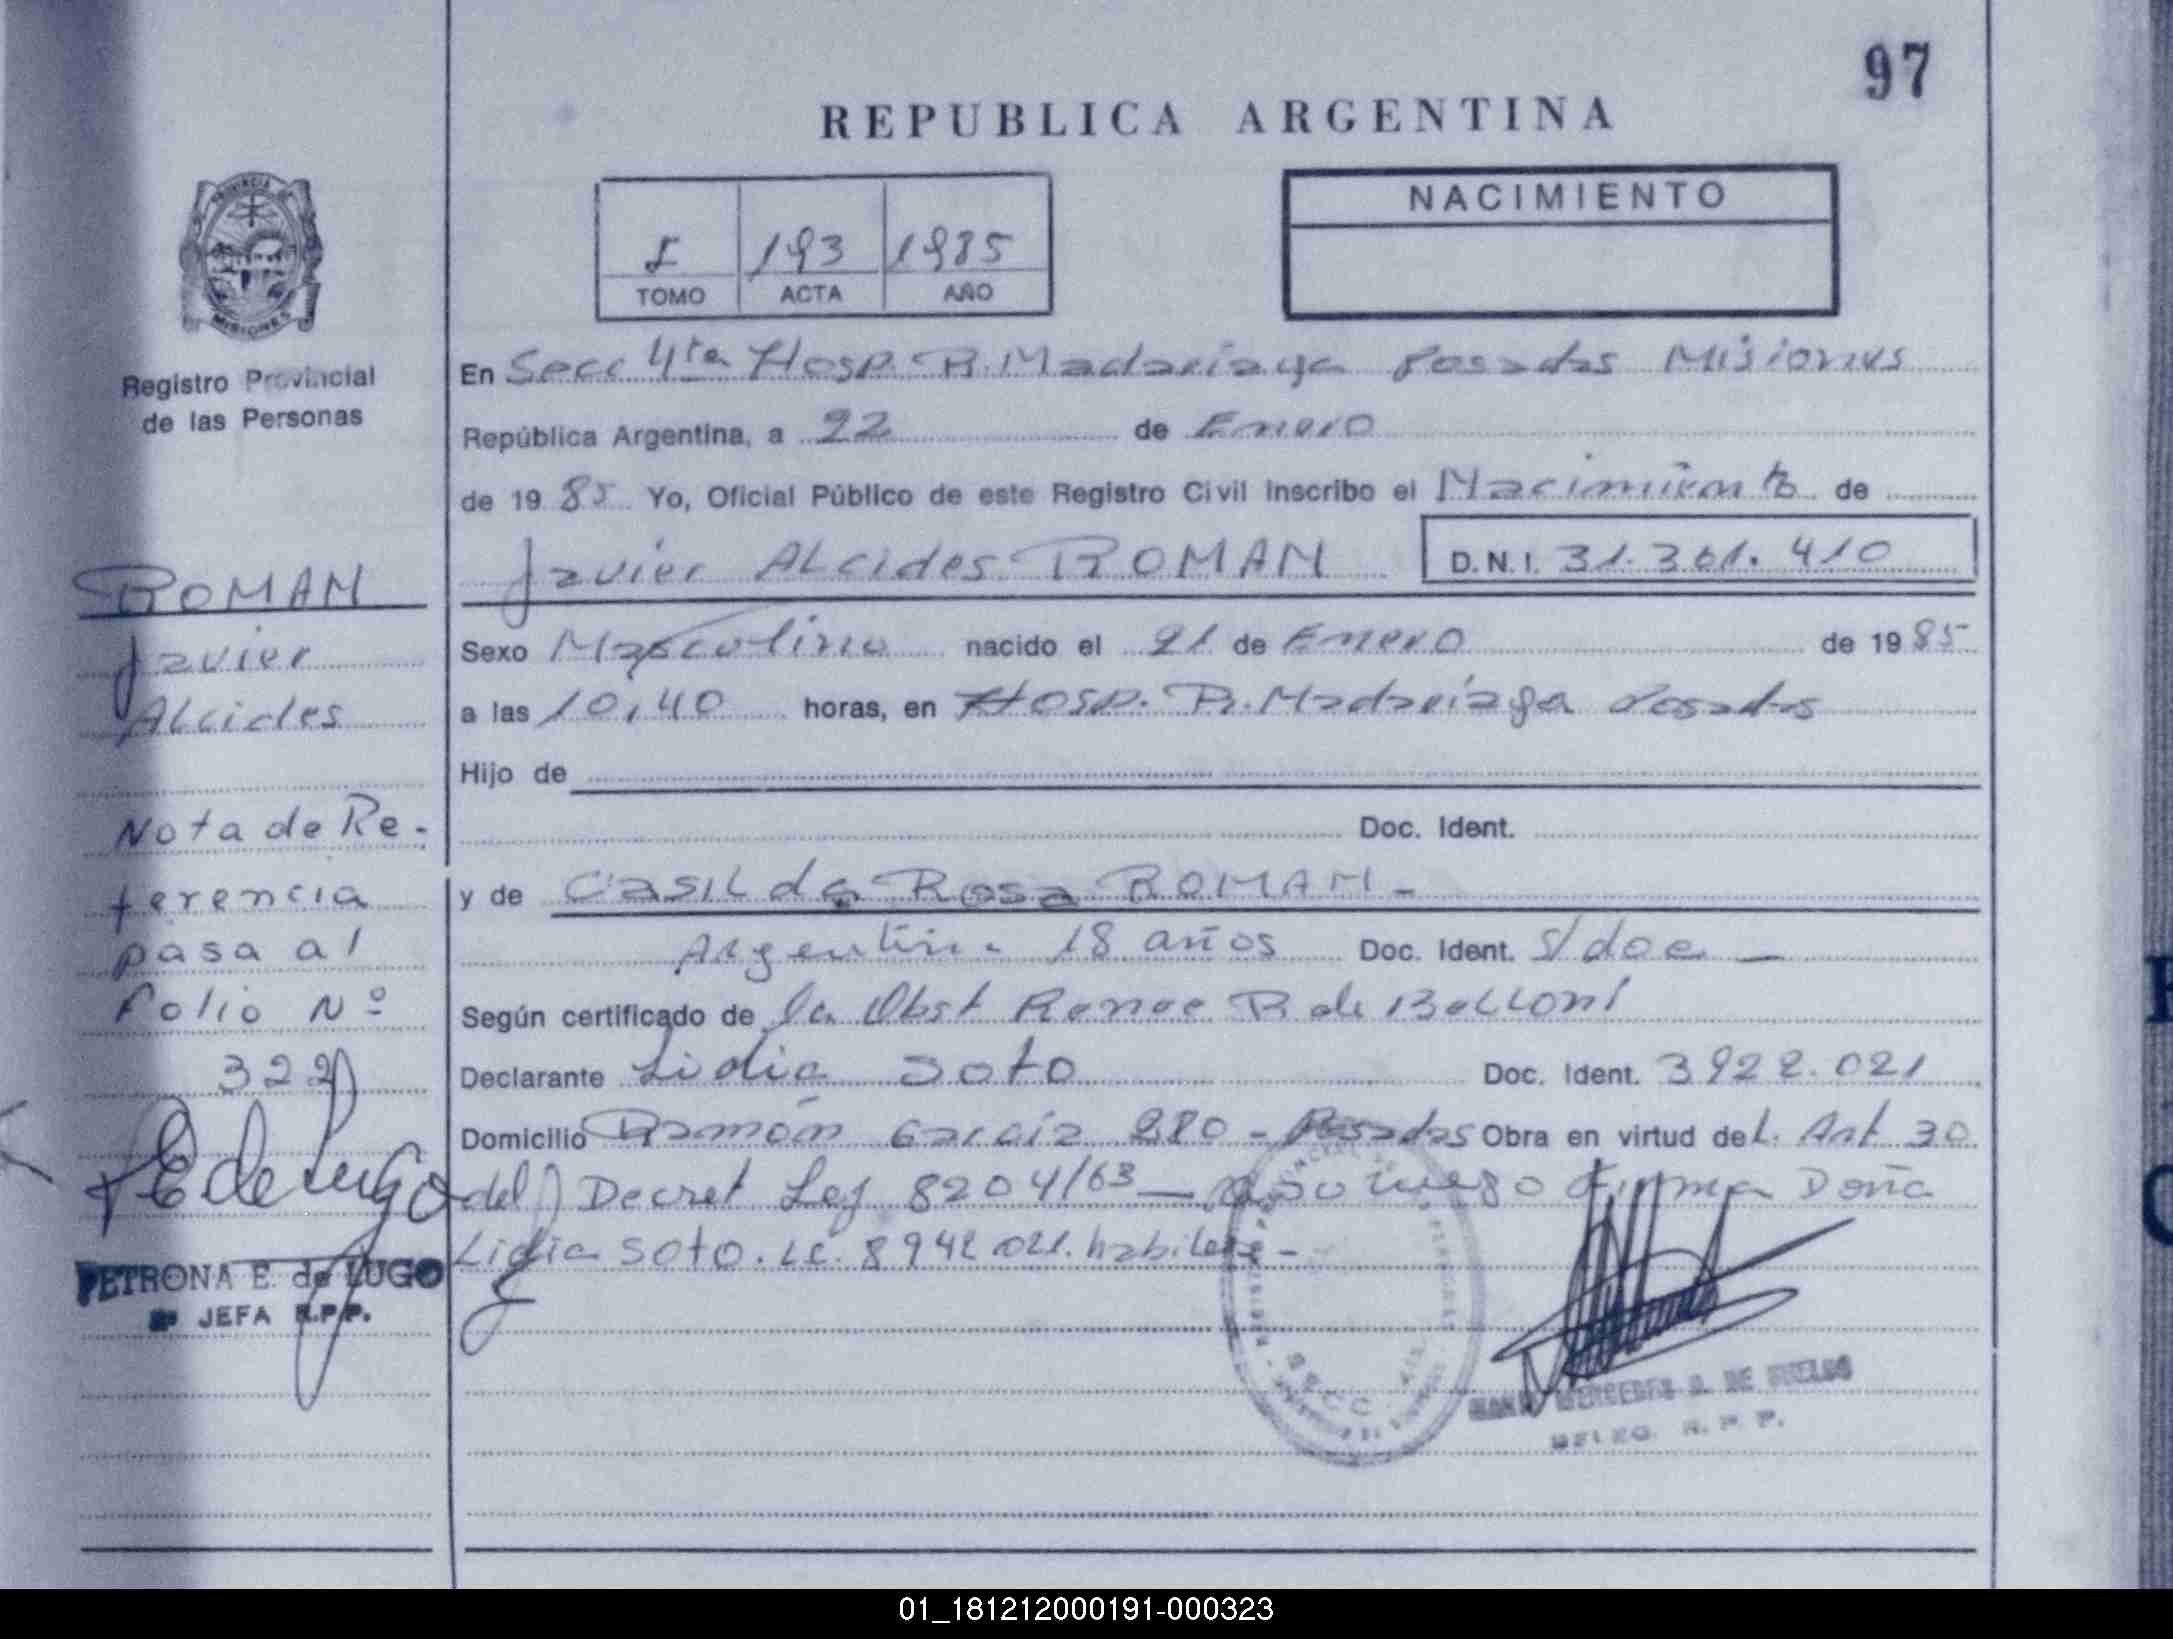 97
REPUBLICA ARGENTINA
PROVINCIA DE
MISIONES
Registro Provincial
de las Personas
I 193 1985
TOMO ACTA AÑO
NACIMIENTO
En Secc 4ta Hosp. R. Madariaga Posadas Misiones
República Argentina, a 22 de Enero
de 1985 Yo, Oficial Público de este Registro Civil inscribo el Nacimiento de
Javier Alcides ROMAN D.N.I. 31.301.410
Sexo Masculino nacido el 21 de Enero de 1985
a las 10,40 horas, en Hosp. R. Madariaga Posadas
Hijo de
Doc. Ident.
y de Casilda Rosa ROMAN -
Argentina 18 años Doc. Ident. S/doc —
Según certificado de la Obst Renee R de Belloni
Declarante Lidia Soto Doc. Ident. 3922.021
Domicilio Ramón Garcia 280 - Posadas Obra en virtud del. Art 30
del Decret Ley 8204/63 — a su ruego Firma Doña
Lidia Soto. LC. 8942021. habil
ROMAN
Javier
Alcides
Nota de Re-
ferencia
pasa al
Folio Nº
322
PEdeLugo
PETRONA E. de LUGO
JEFA R.P.P.
MERCEDES DE
DELEG. R.P.P.
01_181212000191-000323